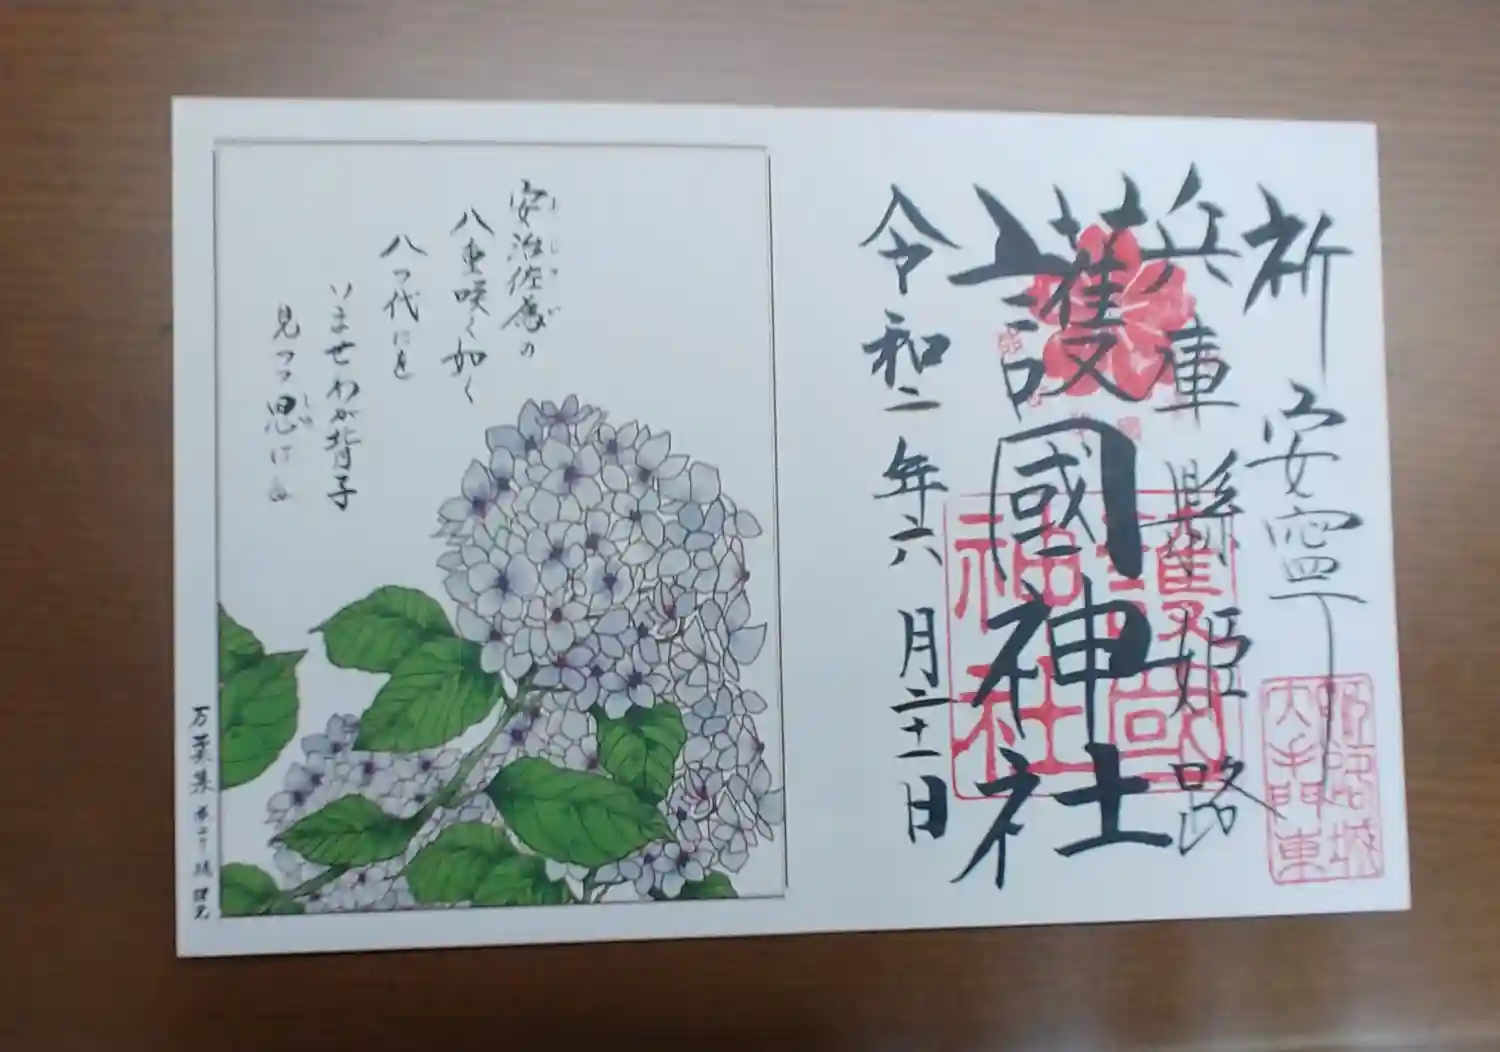 祈 安寧
兵庫縣姫路
護國神社
令和二年六月二十一日
護國
神社
姫路城
大手門東
安治佐為の
八重咲く如く
八つ代にを
いませわが背子
見つつ思はむ
しの
万葉集 橘諸兄